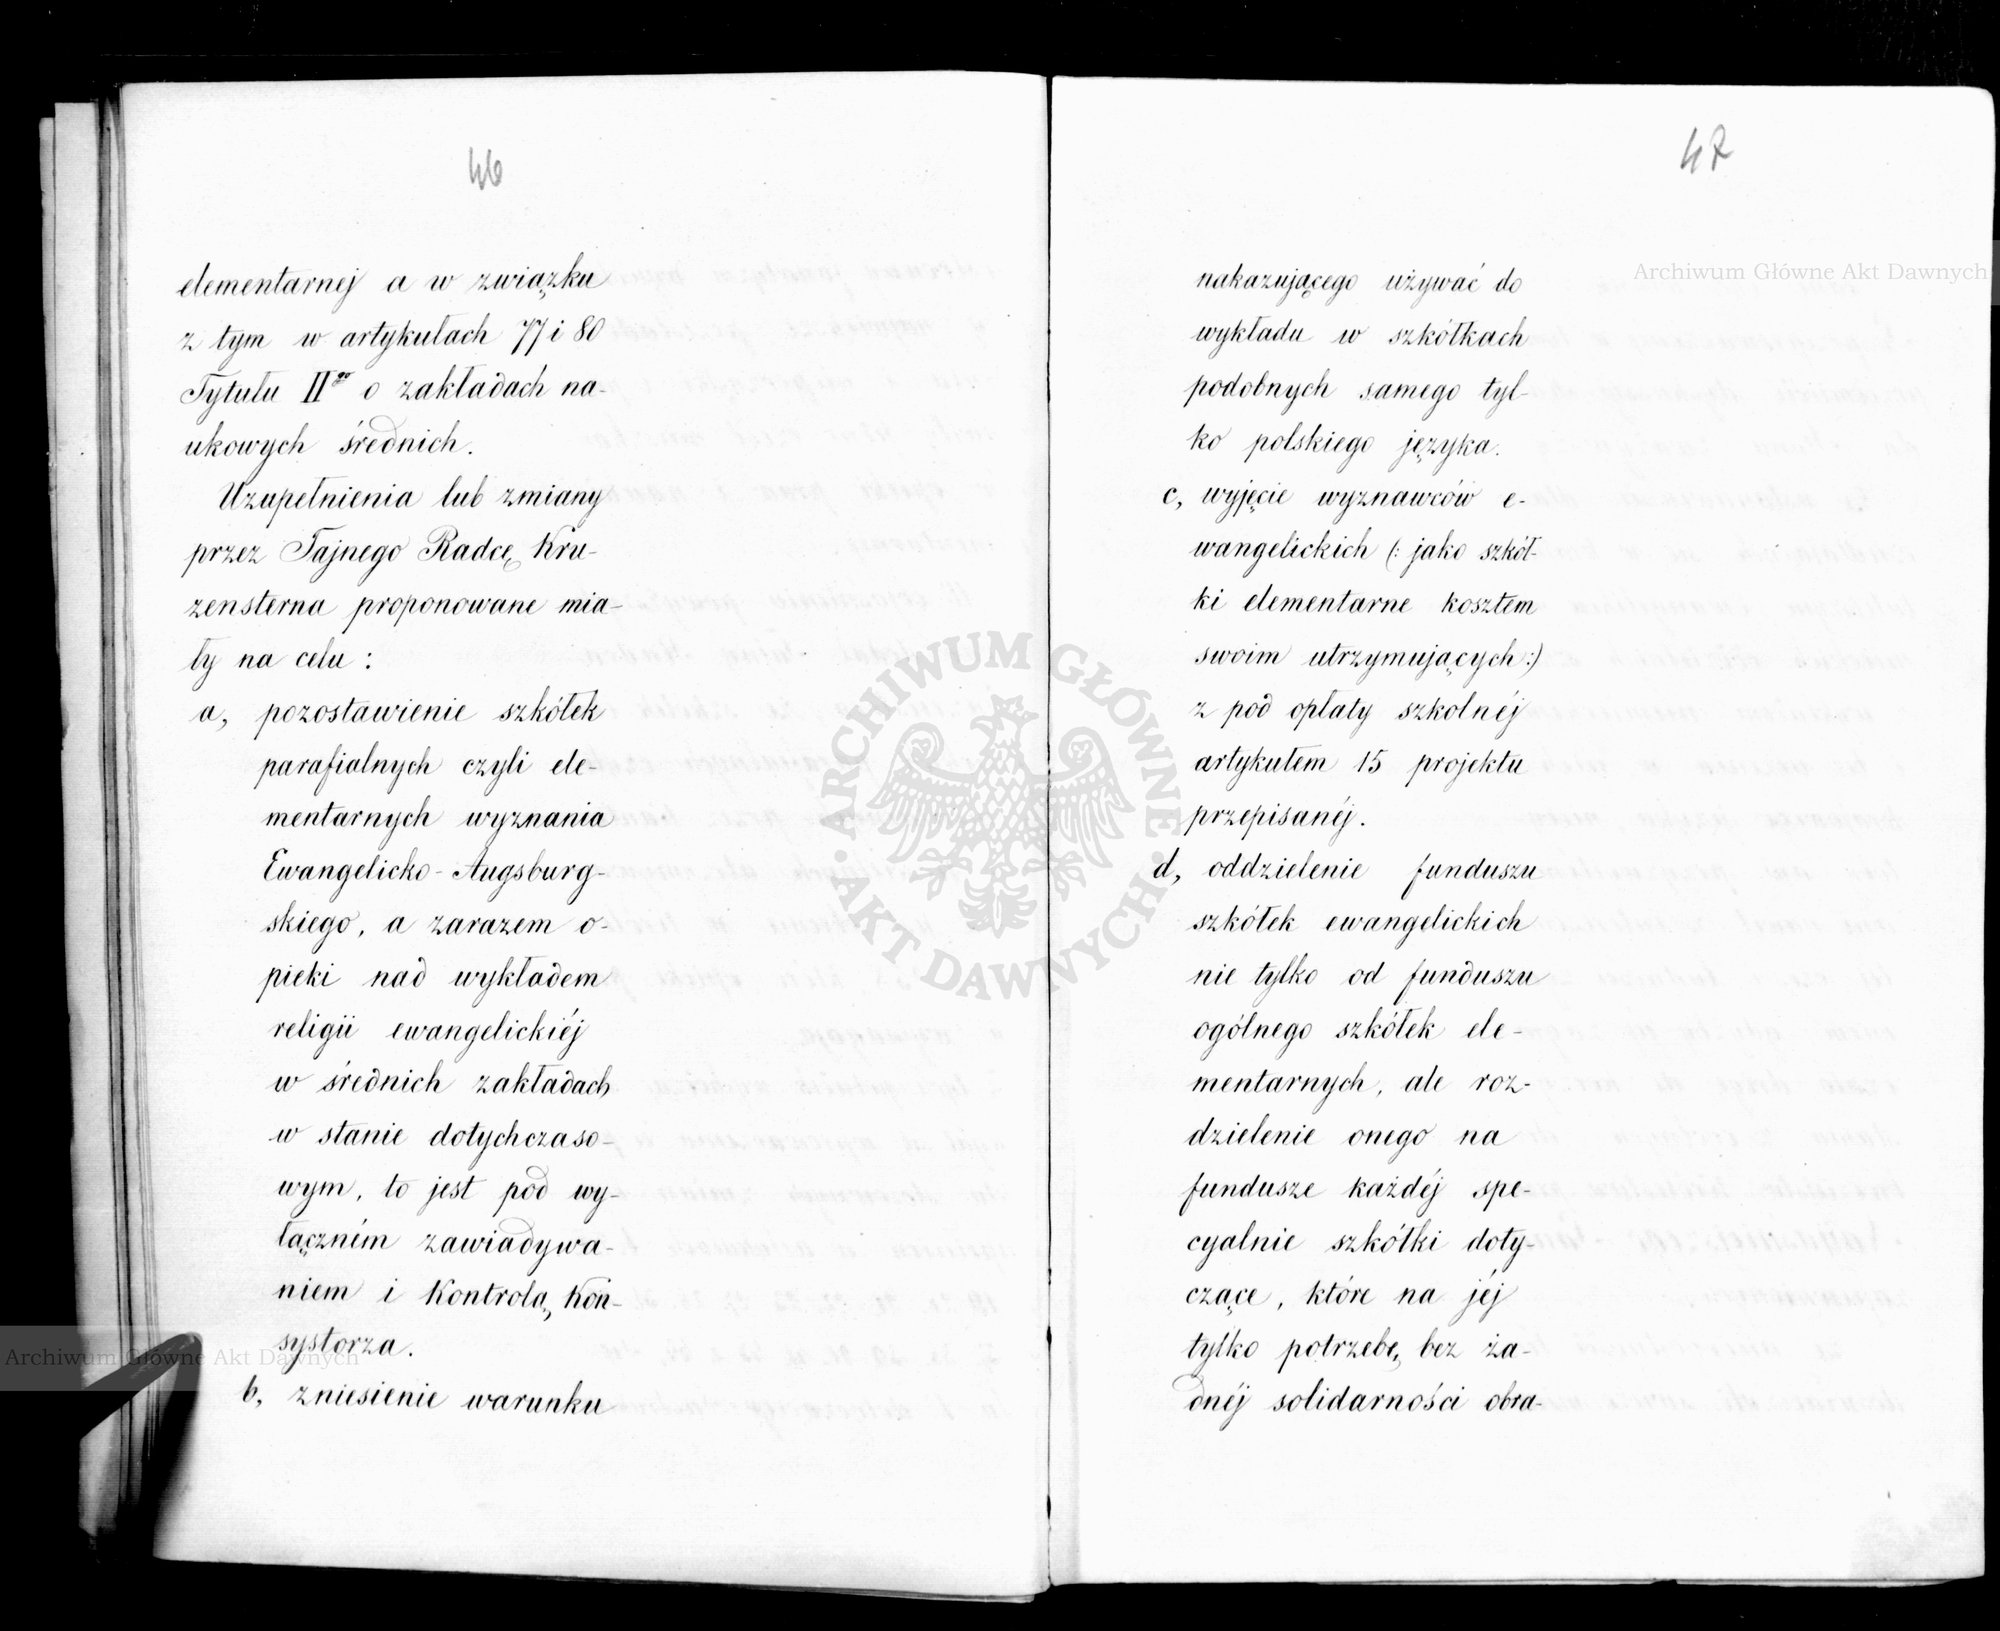 46
elementarnej a w związku
z tym w artykułach 77 i 80
Tytułu II<sup>go</sup> o zakładach na-
ukowych średnich.
Uzupełnienia lub zmiany
przez Tajnego Radcę Kru-
zensterna proponowane mia-
ły na celu :
a, pozostawienie szkółek
parafialnych czyli ele-
mentarnych wyznania
Ewangelicko-Augsburg-
skiego, a zarazem o-
pieki nad wykładem
religii ewangelickiéj
w średnich zakładach
w stanie dotychczaso-
wym, to jest pod wy-
łączném zawiadywa-
niem i Kontrolą Kon-
systorza.
b, zniesienie warunku
47
nakazującego używać do
wykładu w szkółkach
podobnych samego tyl-
ko polskiego języka.
c, wyjęcie wyznawców e-
wangelickich (: jako szkół-
ki elementarne kosztem
swoim utrzymujących :)
z pod opłaty szkolnéj
artykułem 15 projektu
przepisanéj.
d, oddzielenie funduszu
szkółek ewangelickich
nie tylko od funduszu
ogólnego szkółek ele-
mentarnych, ale roz-
dzielenie onego na
fundusze każdéj spe-
cyalnie szkółki doty-
czące, które na jéj
tylko potrzebę, bez ża-
dnéj solidarności obra-
Archiwum Główne Akt Dawnych
Archiwum Główne Akt Dawnych
ARCHIWUM GŁÓWNE
AKT DAWNYCH